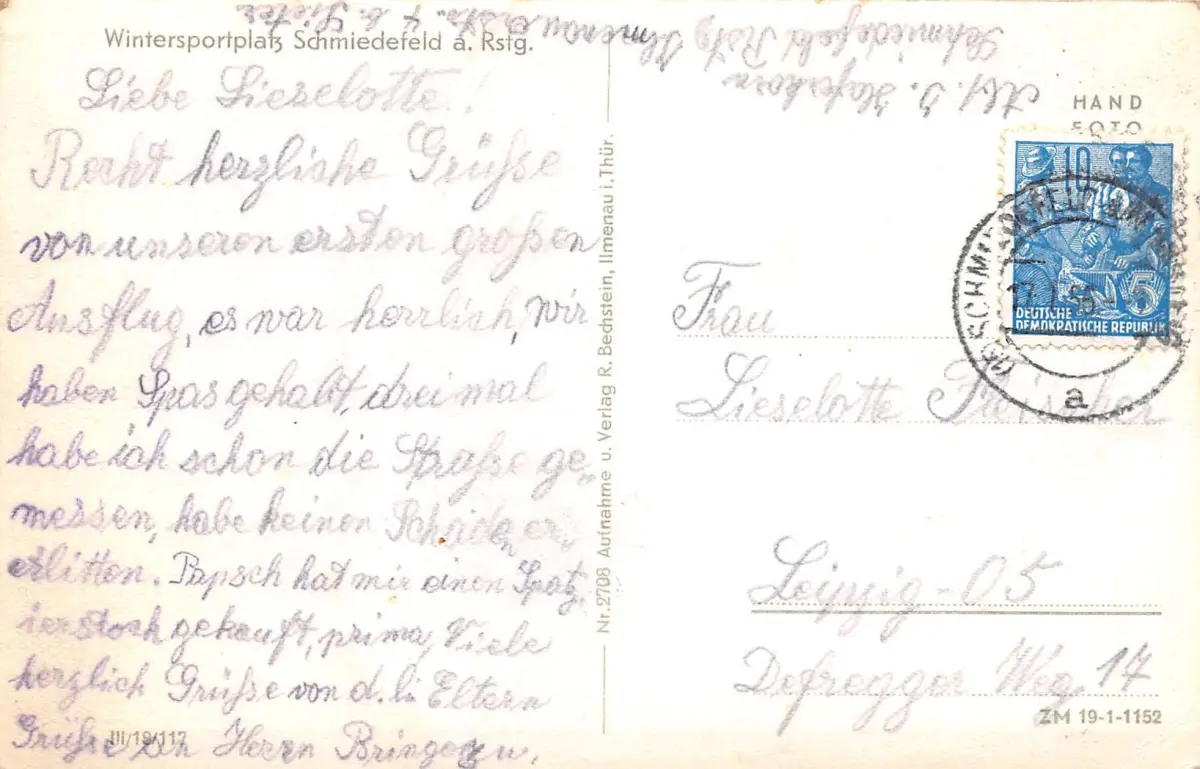 Wintersportplatz Schmiedefeld a. Rstg.
Liebe Lieselotte!
Recht herzliche Grüße
von unseren ersten großen
Ausflug, es war herrlich, wir
haben Spas gehabt dreimal
habe ich schon die Straße ge„
messen, habe keinen Schaden er„
erlitten. Papsch hat mir einen
gekauft, prima, Viele
herzlich Grüße von d. lb. Eltern
Grüße an Herrn u.
III/18/117
Nr. 2708 Aufnahme u. Verlag R. Bechstein, Ilmenau i. Thür.
Abs. J.
Schmiedefeld Rstg Ilmenau
HAND
FOTO
10
5
DEUTSCHE
DEMOKRATISCHE REPUBLIK
SCHMIEDEFELD
a
Frau
Lieselotte
Leipzig-O5
Defregger Weg 14
ZM 19-1-1152